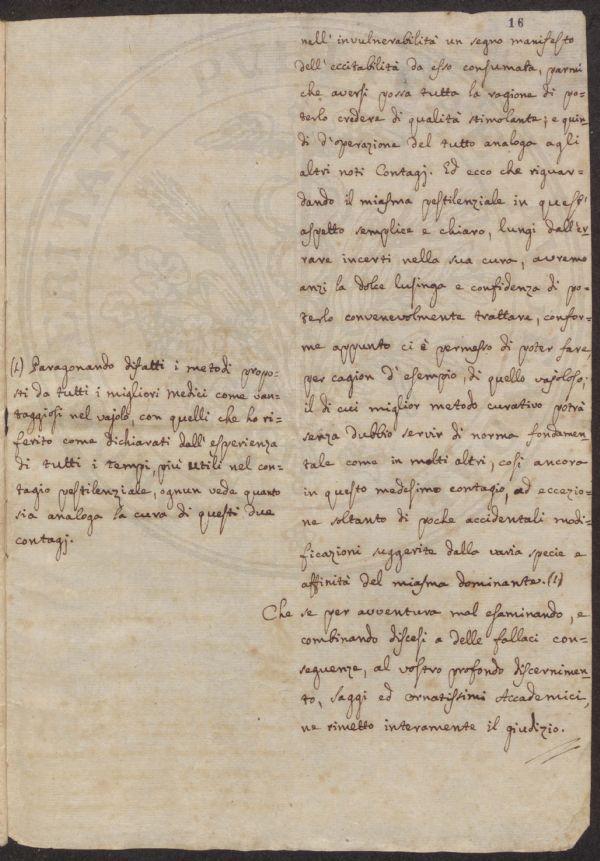 16
nell' invulnerabilità un segno manifesto
dell' eccitabilità da esso consumata, parmi
che aversi possa tutta la ragione di po=
terlo credere di qualità stimolante; e quin
di d'operazione del tutto analoga agli
altri noti Contagj. Ed ecco che riguar=
dando il miasma pestilenziale in quest'
aspetto semplice e chiaro, lungi dall'er
rare incerti nella sua cura, avremo
anzi la dolce lusinga e confidenza di po=
terlo convenevolmente trattare, confor=
me appunto ci è permesso di poter fare,
per cagion d'esempio, di quello vajoloso;
il di cui miglior metodo curativo potrà
senza dubbio servir di norma fondamen
tale come in molti altri, così ancora
in questo medesimo contagio, ad eccezio=
ne soltanto di poche accidentali modi=
ficazioni suggerite dalla varia specie e
affinità del miasma dominante. (1)
Che se per avventura mal esaminando, e
combinando discesi a delle fallaci con=
seguenze, al vostro profondo discernimen
to, saggi ed ornatissimi Accademici,
ne rimetto interamente il giudizio.
(1) Paragonando difatti i metodi propo=
sti da tutti i migliori Medici come van=
taggiosi nel vajolo, con quelli che ho ri=
ferito come dichiarati dall' esperienza
di tutti i tempi, più utili nel con=
tagio pestilenziale, ognun vede quanto
sia analoga la cura di questi due
contagj.